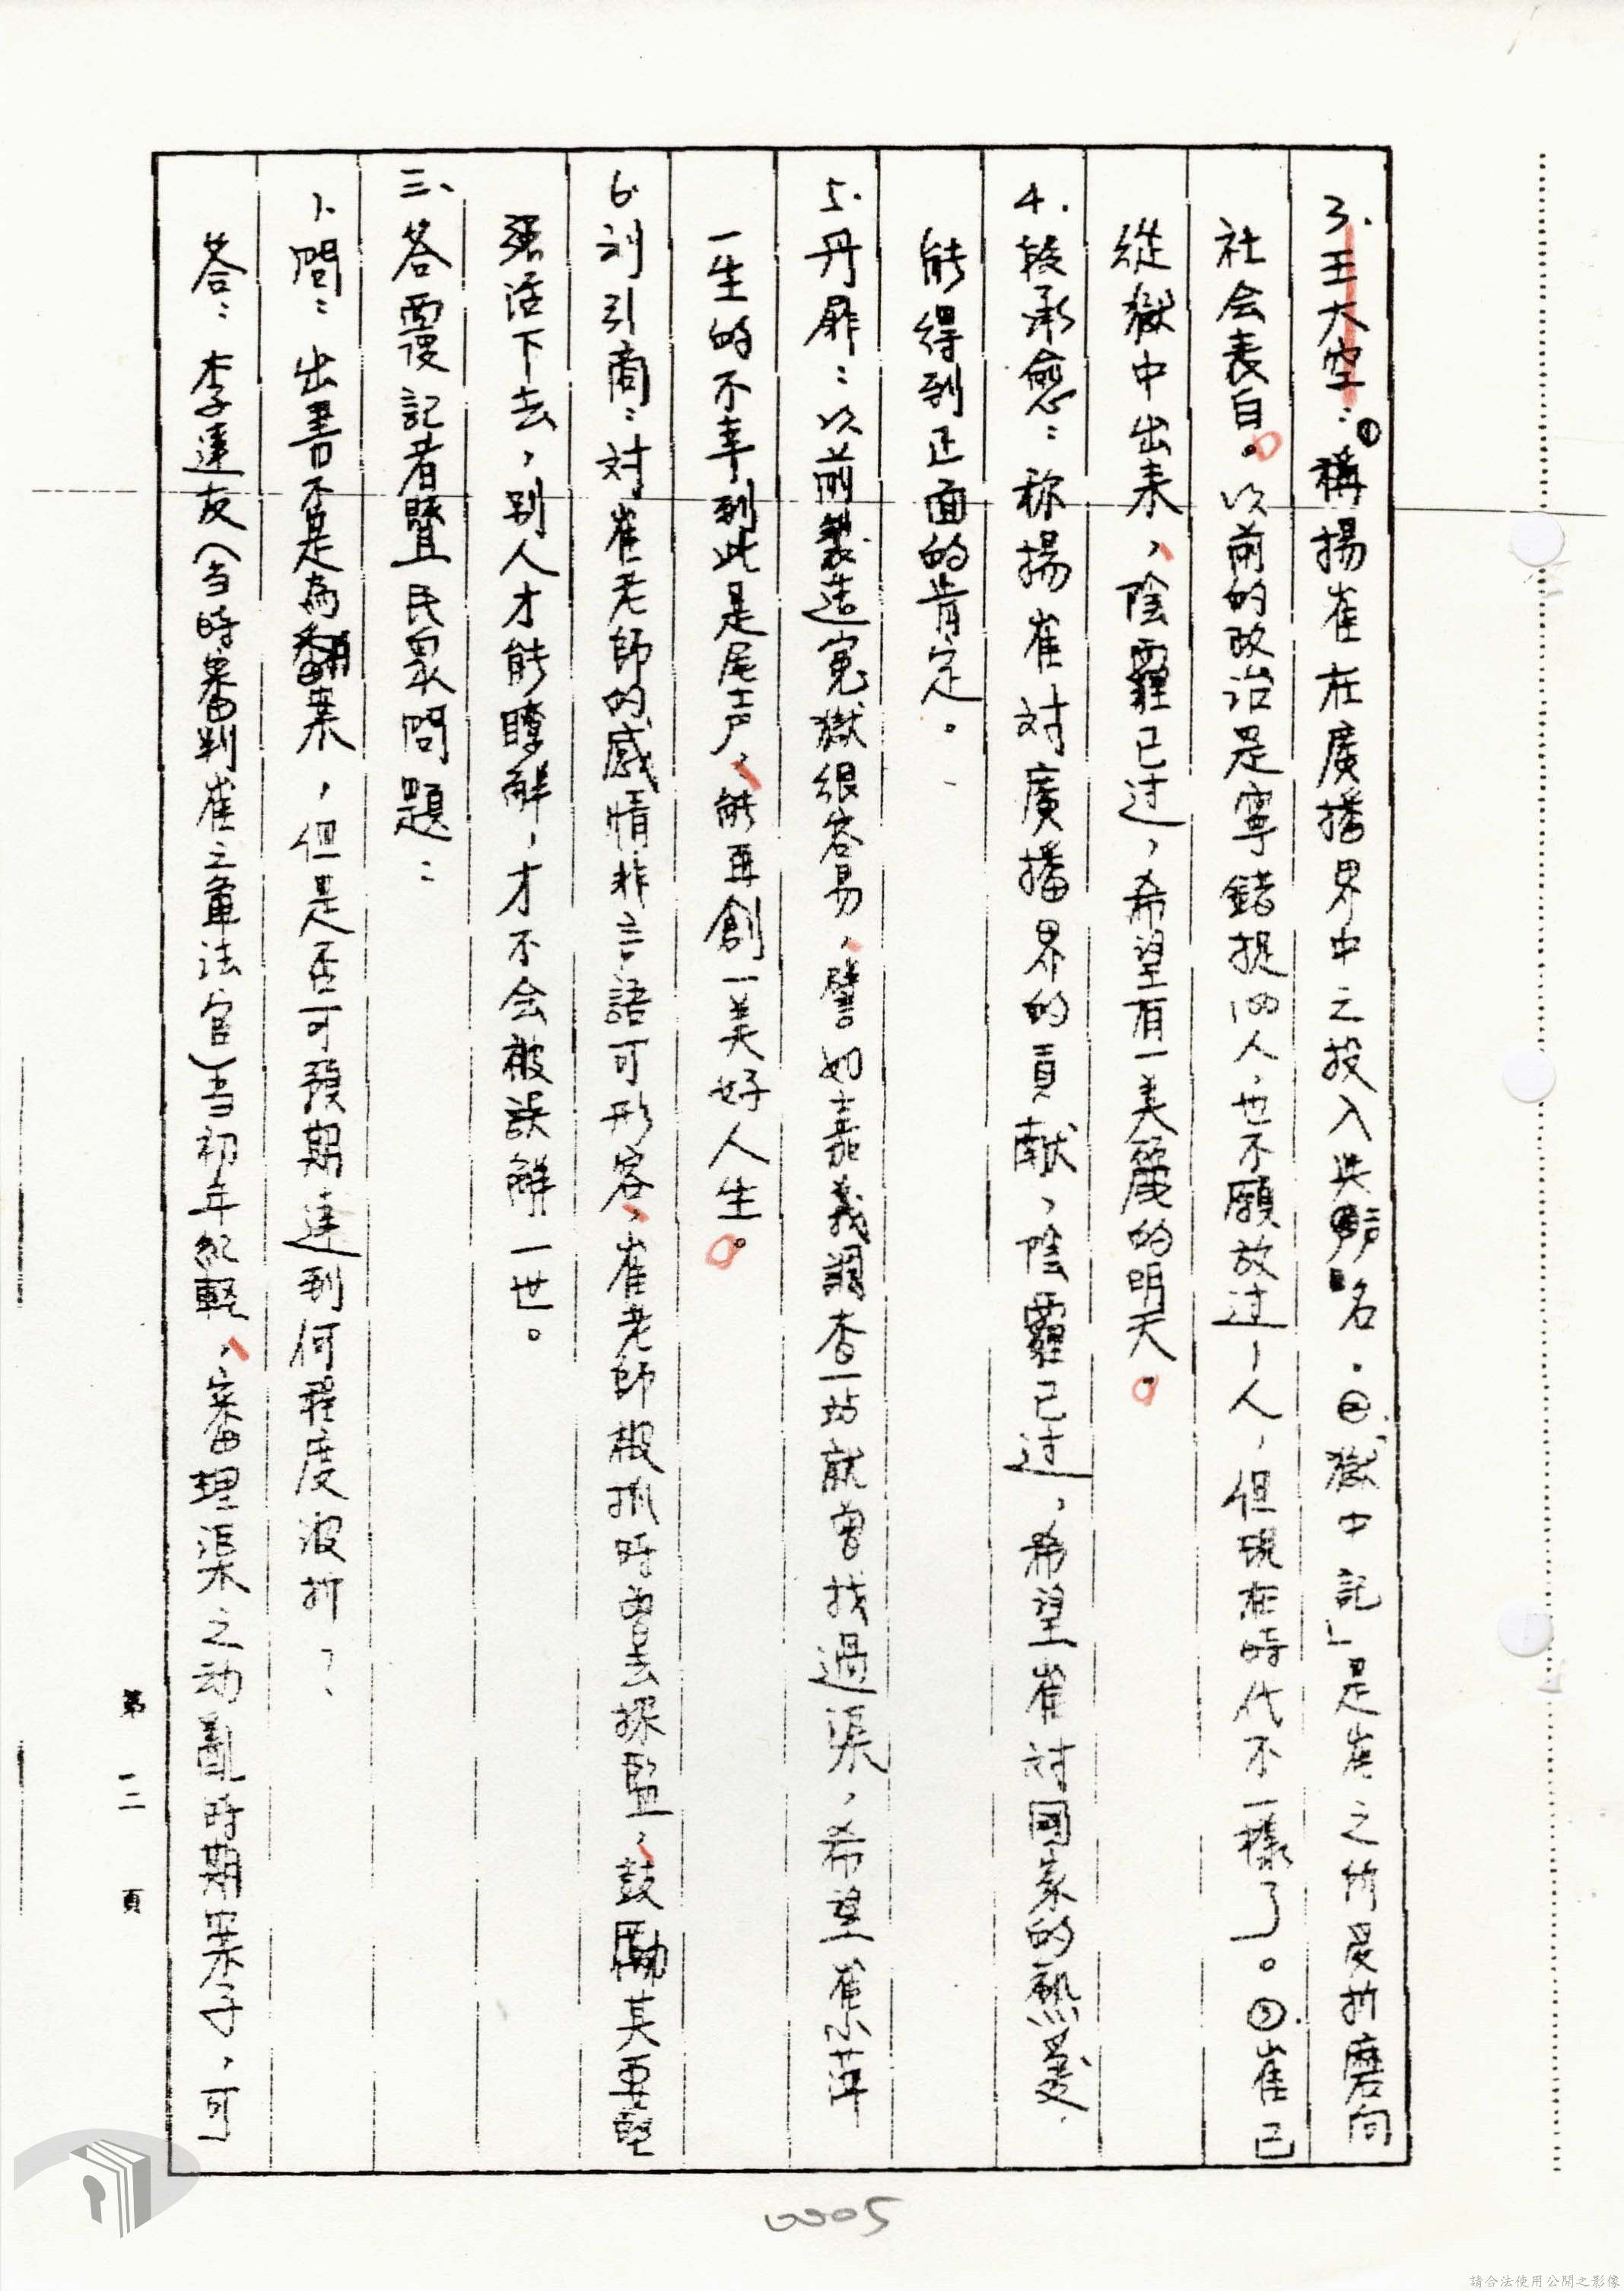 3.王大空：①稱揚崔在廣播界中之投入與聲名。②「獄中記」是崔之所受折磨向
社会表白。以前的政治是寧錯捉四人也不願放过1人，但現在時代不一樣了。③崔已
從獄中出来，陰霾已过，希望有一美麗的明天。
4.較承愈：称揚崔对廣播界的貢献，陰霾已过，希望崔对国家的熱愛
能得到正面的肯定。
5.丹扉：以前製造冤獄很容易，譬如嘉義調查站就曾找過渠，希望崔小萍
一生的不幸到此是尾声，能再創一美好人生。
6.刘引商：对崔老師的感情非言語可形容，崔老師被抓時曾去探監，鼓勵其要堅
强活下去，别人才能瞭解，才不会被誤解一世。
三、答覆記者暨民眾問題：
1.問：出書不是為翻案，但是否可預期達到何程度波折？
答：李達友（当時審判崔之軍法官）当初年紀輕，審理渠之动亂時期案子，可
第二頁
0005
請合法使用公開之影像